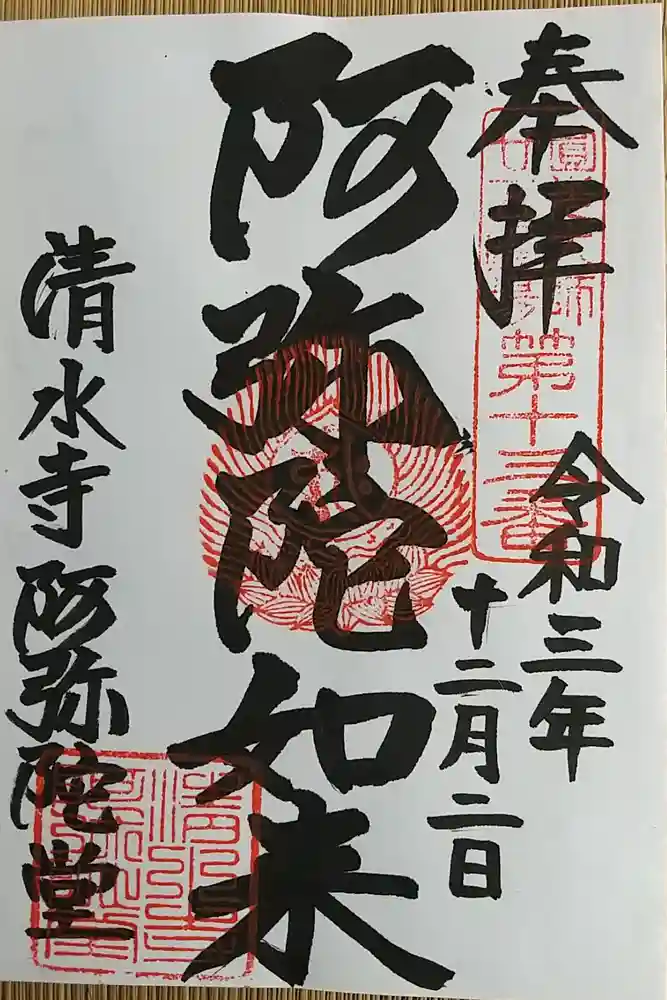 奉拝
圓光大師第十三番
令和三年
十二月二日
阿弥陀如来
清水寺阿弥陀堂